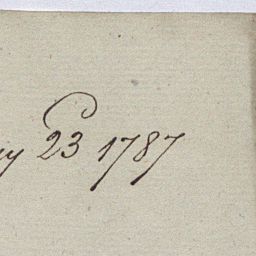 23 1787